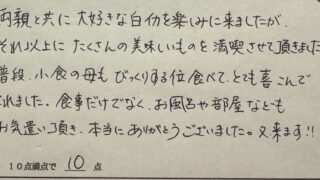 両親と共に大好きな白仂を楽しみに来ましたが、
それ以上にたくさんの美味しいものを満喫させて頂きました
普段、小食の母もびっくりする位食べて、とても喜こんで
くれました。食事だけでなく、お風呂や部屋なども
お気遣い頂き、本当にありがとうございました。又来ます!!
10点満点で 10 点